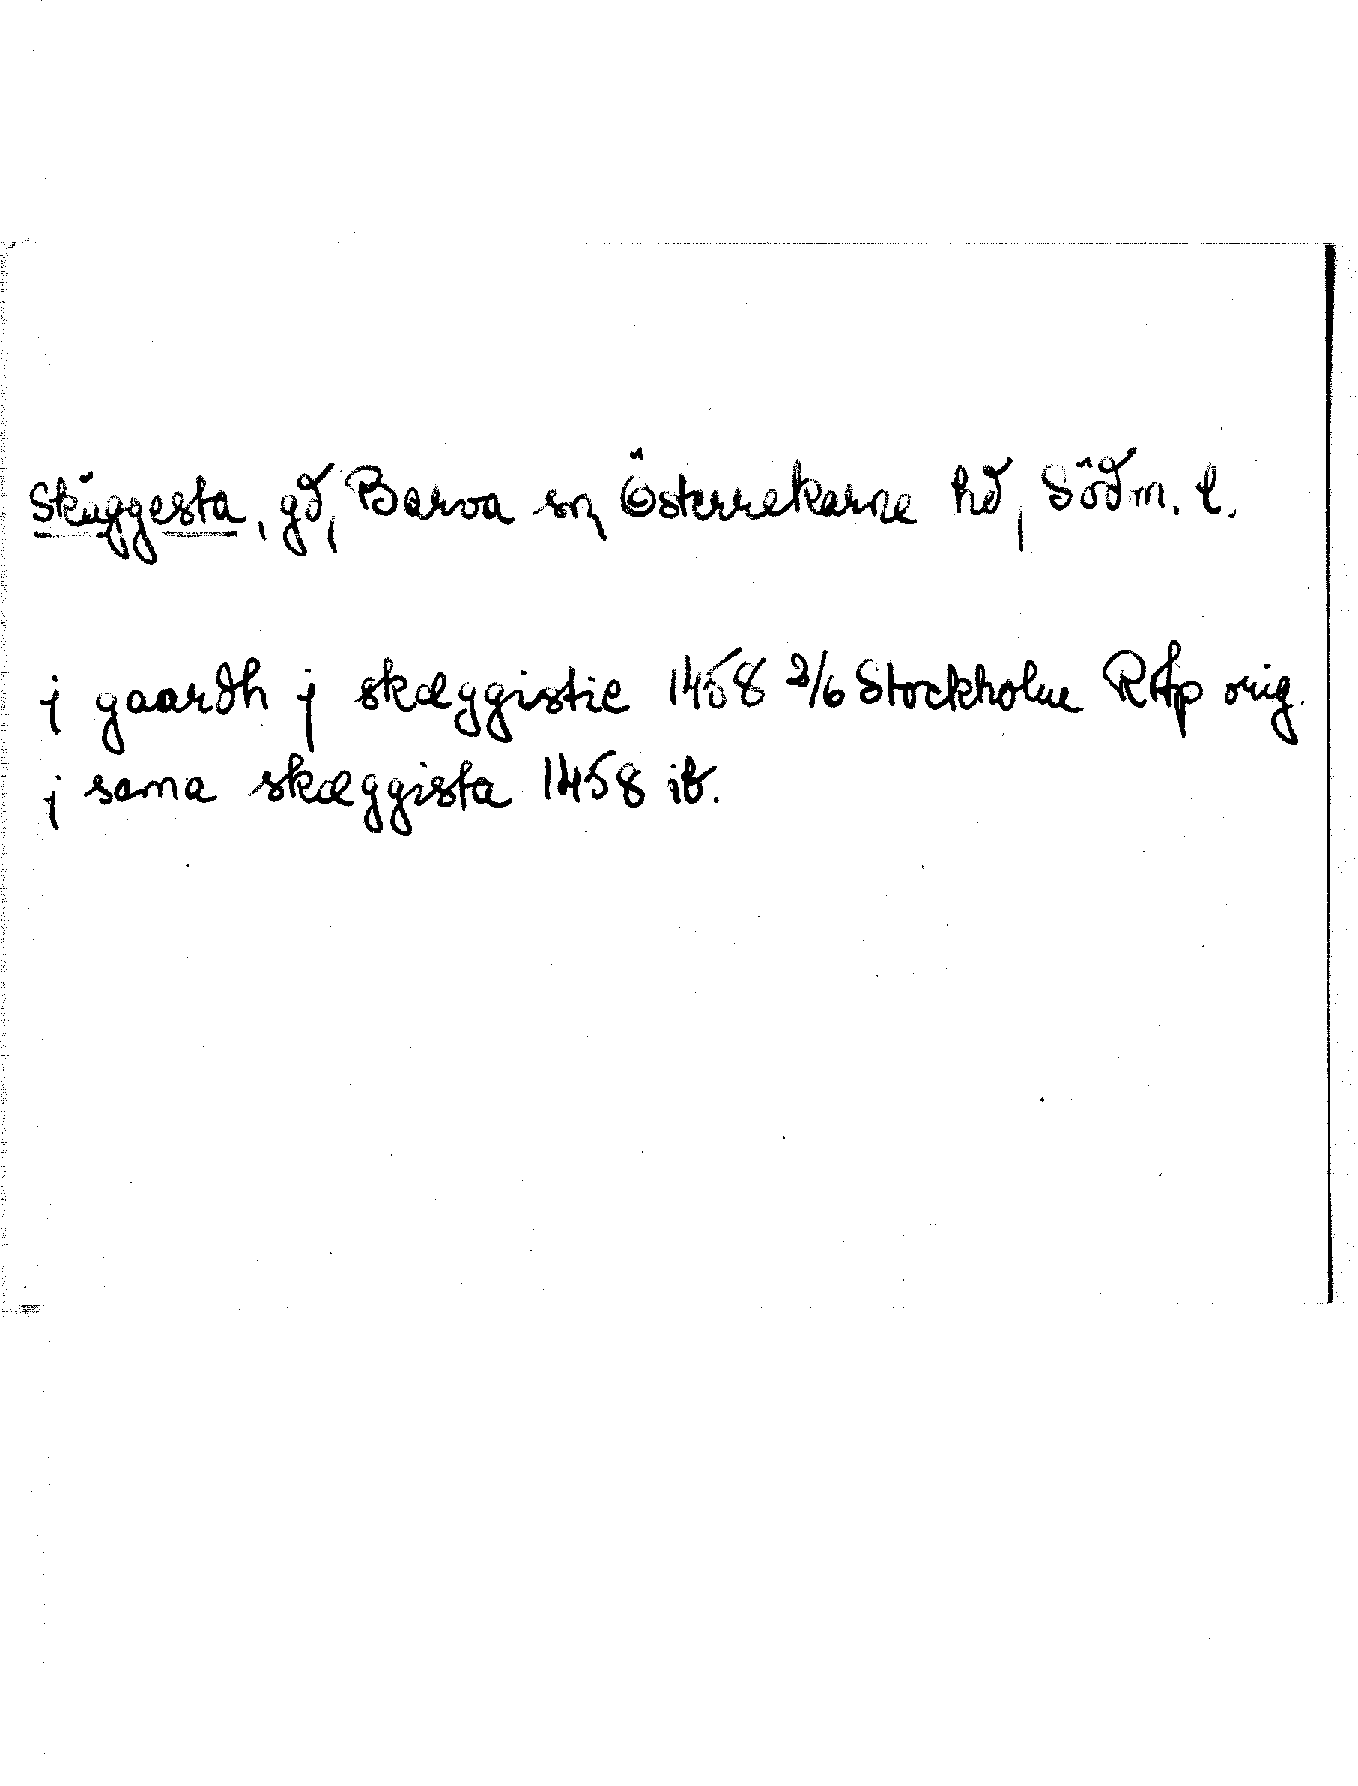 Skäggesta, gd, Barva sn, Österrekarne hd, Södm. l.
j gaardh j skæggistie 1458 2/6 Stockholm RAp orig.
j sama skæggista 1458 ib.